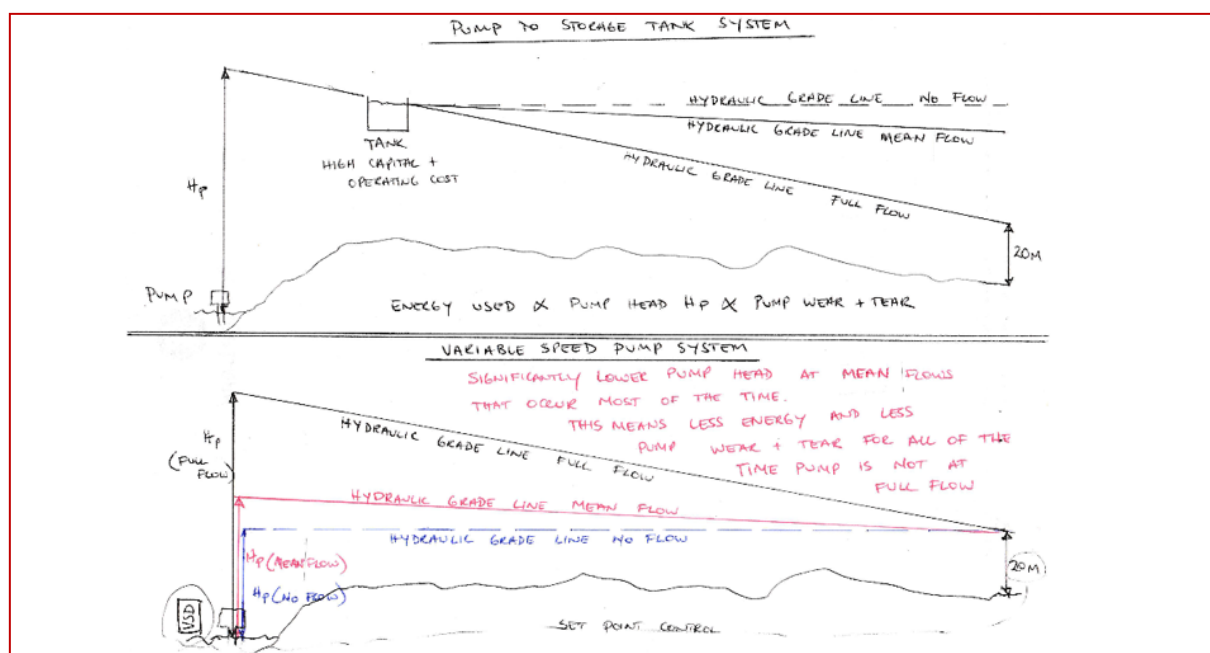 PUMP TO STORAGE TANK SYSTEM
HYDRAULIC GRADE LINE NO FLOW
HYDRAULIC GRADE LINE MEAN FLOW
HYDRAULIC GRADE LINE FULL FLOW
TANK
HIGH CAPITAL +
OPERATING COST
HP
20M
PUMP
ENERGY USED ∝ PUMP HEAD HP ∝ PUMP WEAR + TEAR
VARIABLE SPEED PUMP SYSTEM
SIGNIFICANTLY LOWER PUMP HEAD AT MEAN FLOWS
THAT OCCUR MOST OF THE TIME.
THIS MEANS LESS ENERGY AND LESS
PUMP WEAR + TEAR FOR ALL OF THE
TIME PUMP IS NOT AT
FULL FLOW
HP
(FULL
FLOW)
HYDRAULIC GRADE LINE FULL FLOW
HYDRAULIC GRADE LINE MEAN FLOW
HYDRAULIC GRADE LINE NO FLOW
HP (MEAN FLOW)
HP (NO FLOW)
20M
VSD
SET POINT CONTROL